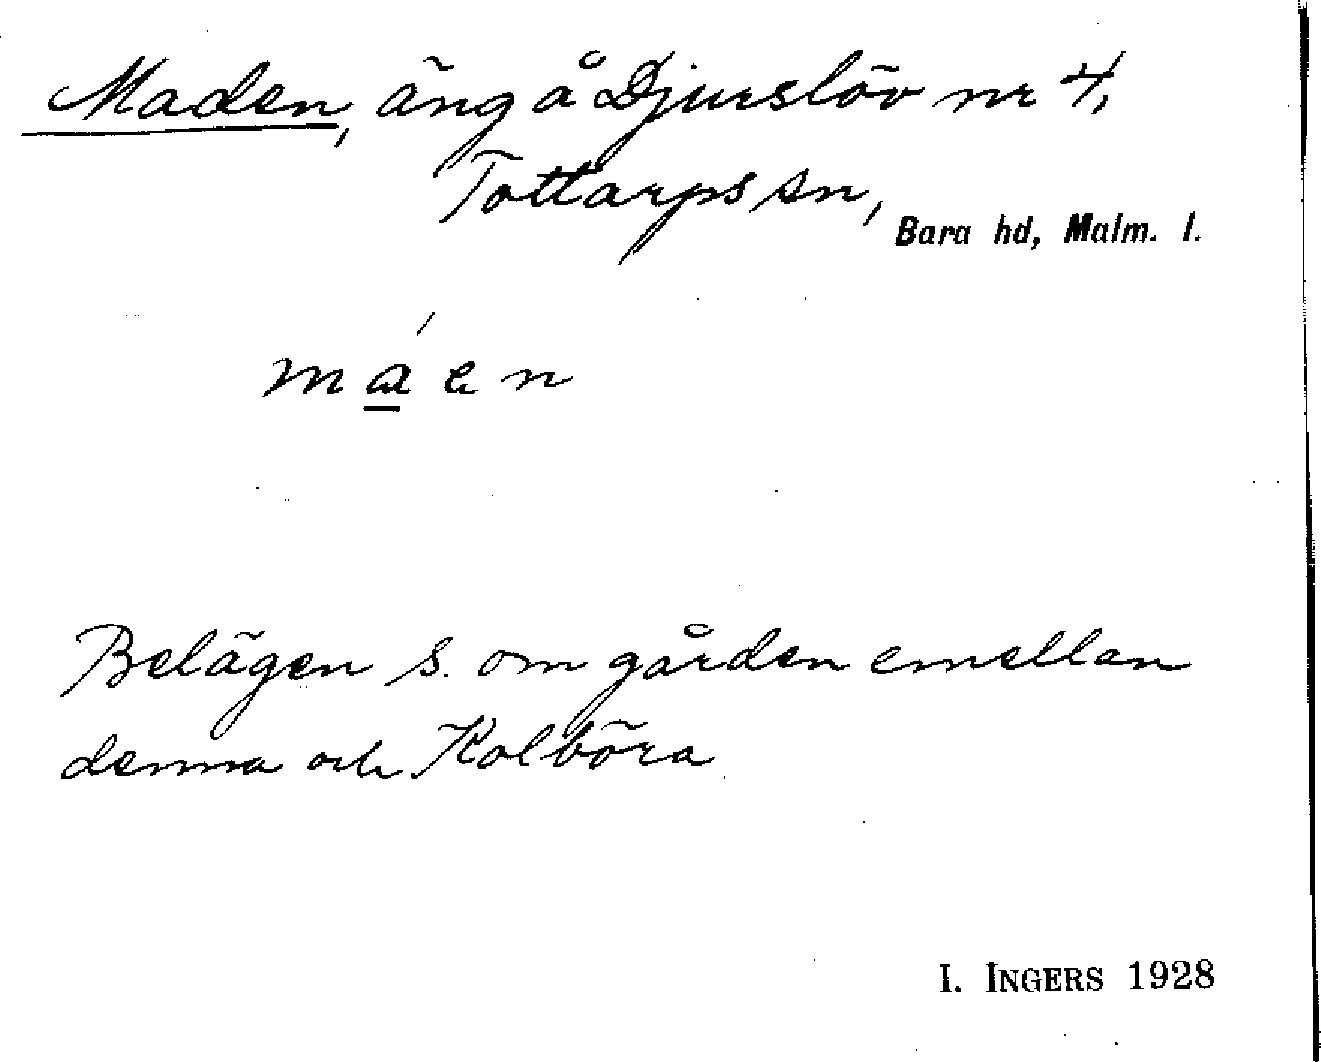 Maden, äng å Djurslöv nr 4,
Tottarps sn,
Bara hd, Malm. l.
máen
Belägen s. om gården emellan
denna och Kolböra
I. INGERS 1928